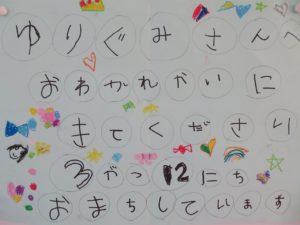 ゆりぐみさんへ
おわかれかいに
きてください
3がつ12にち
おまちしています